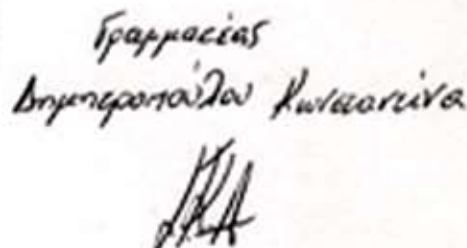 Γραμματέας
Δημητροπούλου Κωνσταντίνα